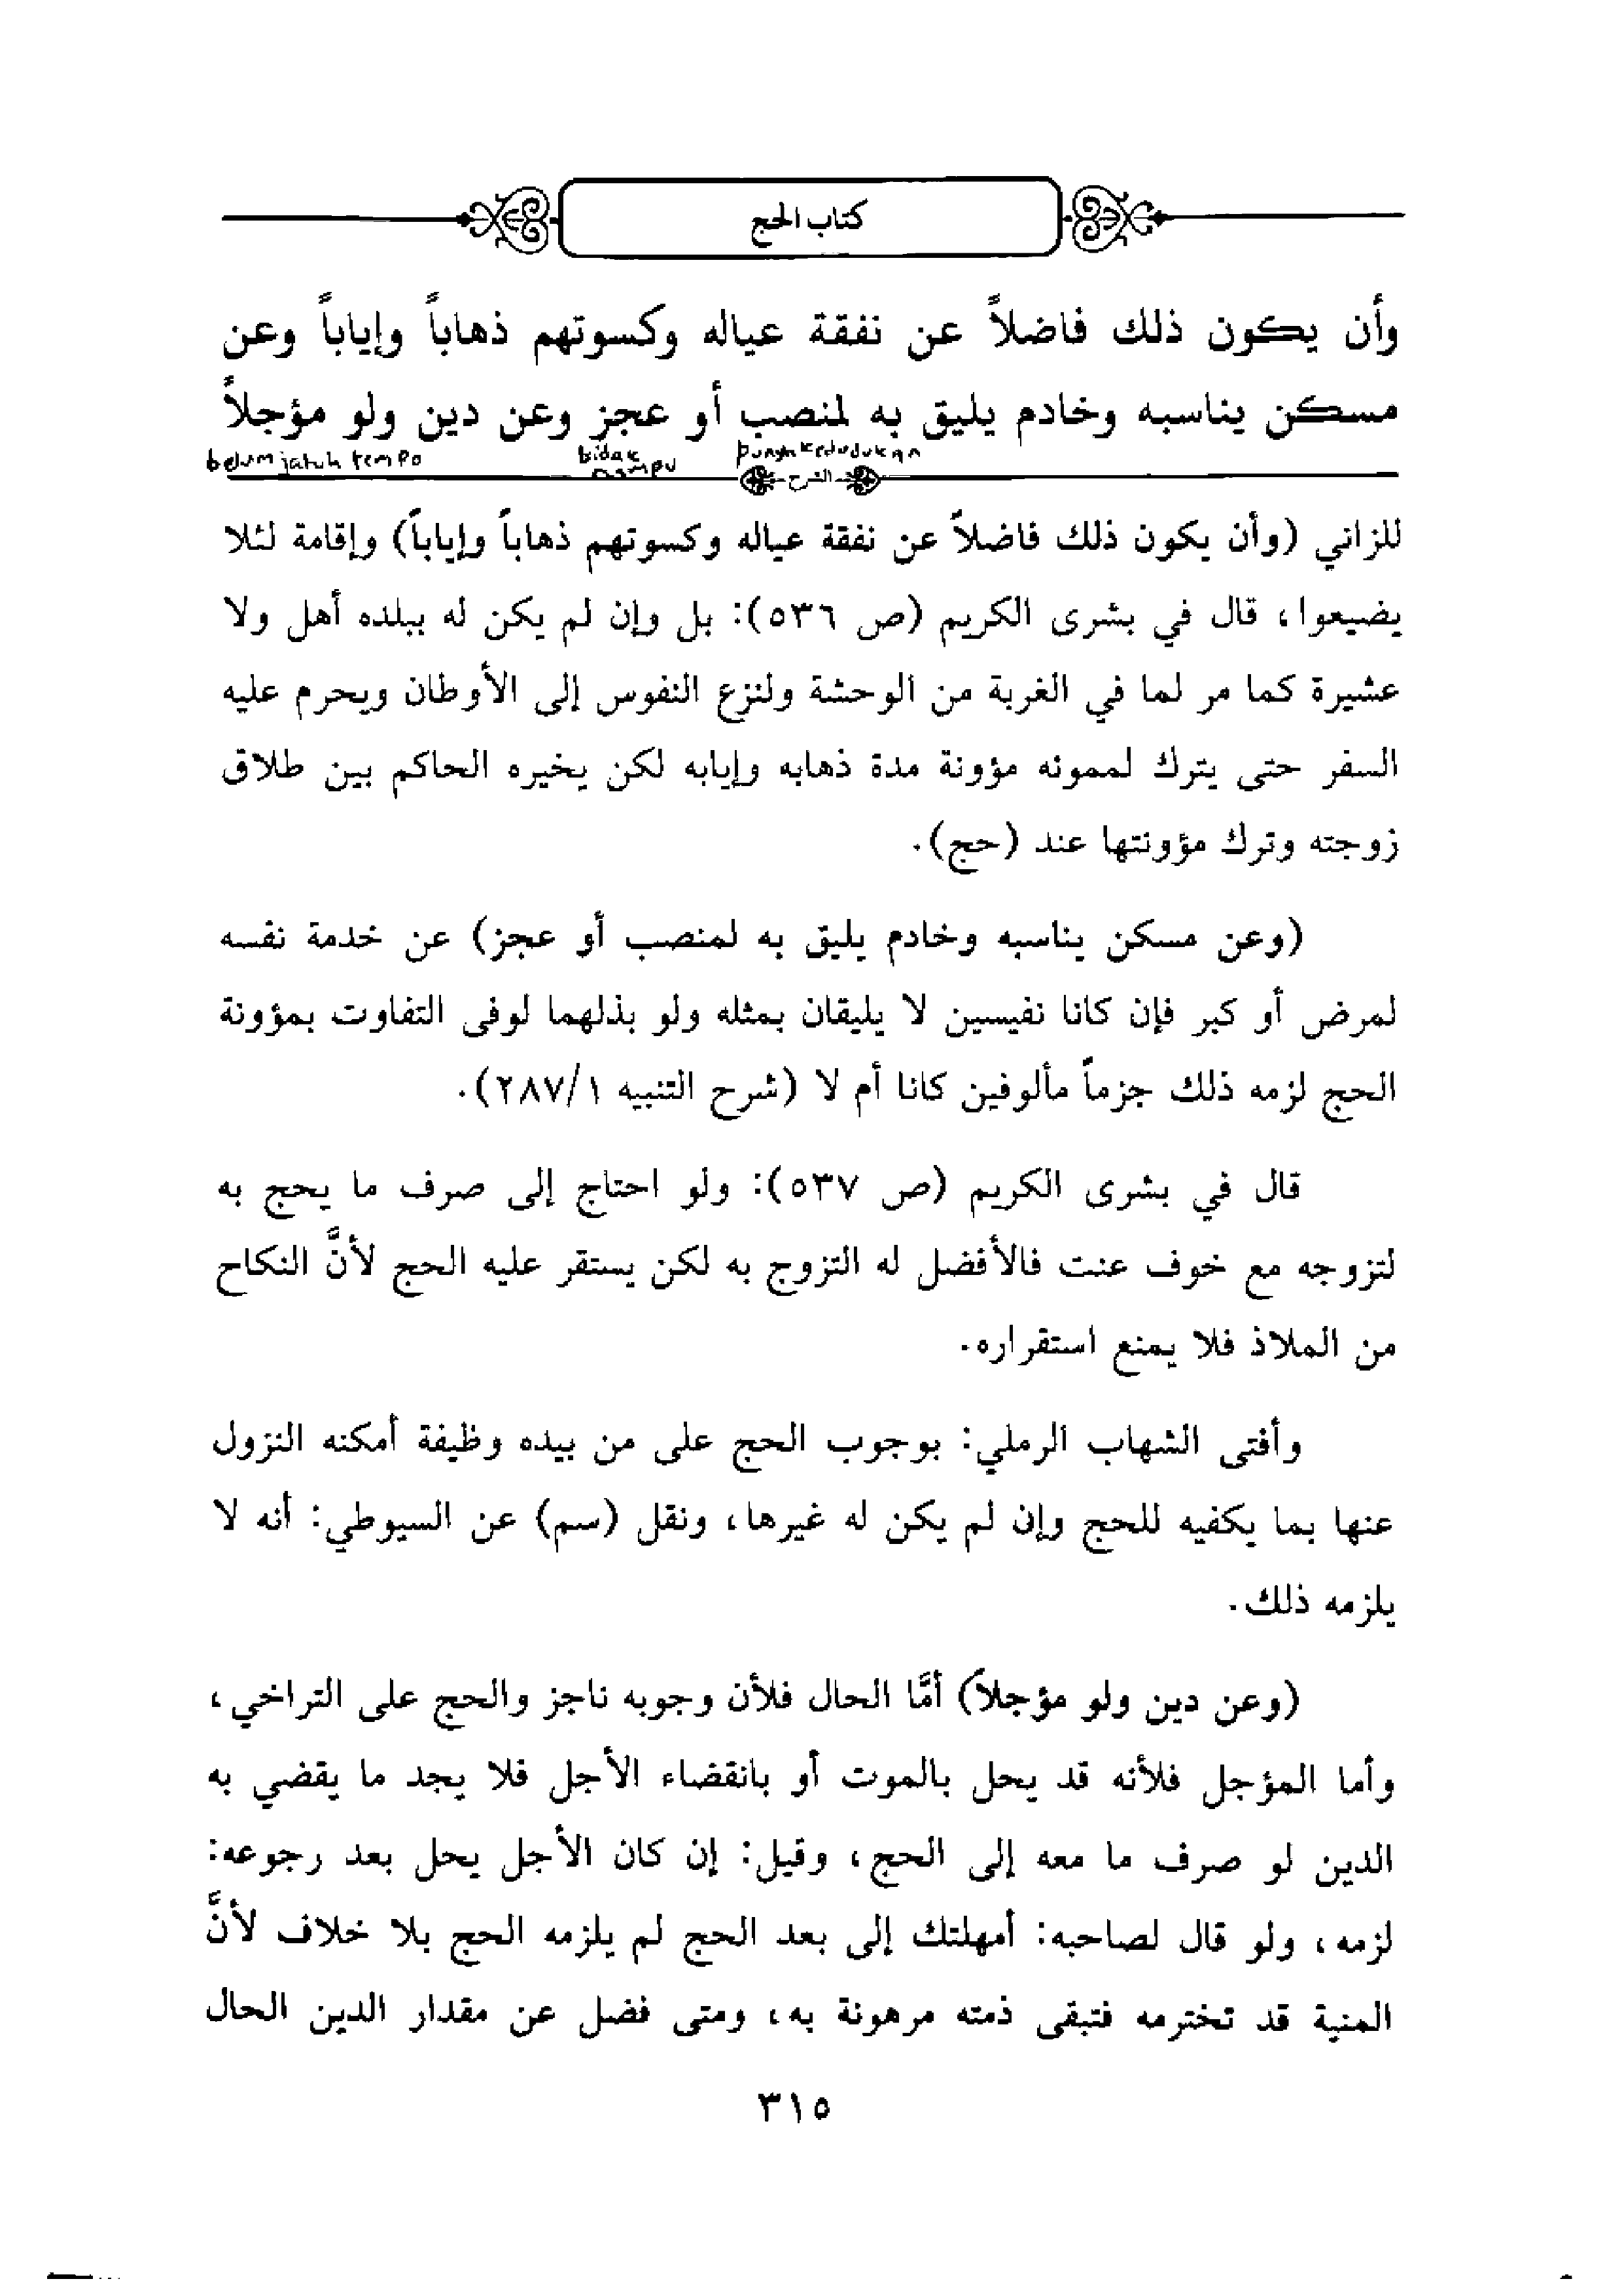 كتاب الحج
وأن يكون ذلك فاضلاً عن نفقة عياله وكسوتهم ذهاباً وإياباً وعن
مسكن يناسبه وخادم يليق به لمنصب أو عجز وعن دين ولو مؤجلاً
punya kedudukan tidak mampu belum jatuh tempo
الشرح
للزاني (وأن يكون ذلك فاضلاً عن نفقة عياله وكسوتهم ذهاباً وإياباً) وإقامة لئلا
يضيعوا، قال في بشرى الكريم (ص ٥٣٦): بل وإن لم يكن له ببلده أهل ولا
عشيرة كما مر لما في الغربة من الوحشة ولنزع النفوس إلى الأوطان ويحرم عليه
السفر حتى يترك لممونه مؤونة مدة ذهابه وإيابه لكن يخيره الحاكم بين طلاق
زوجته وترك مؤونتها عند (حج).
(وعن مسكن يناسبه وخادم يليق به لمنصب أو عجز) عن خدمة نفسه
لمرض أو كبر فإن كانا نفيسين لا يليقان بمثله ولو بذلهما لوفى التفاوت بمؤونة
الحج لزمه ذلك جزماً مألوفين كانا أم لا (شرح التنبيه ١/٢٨٧).
قال في بشرى الكريم (ص ٥٣٧): ولو احتاج إلى صرف ما يحج به
لتزوجه مع خوف عنت فالأفضل له التزوج به لكن يستقر عليه الحج لأنَّ النكاح
من الملاذ فلا يمنع استقراره.
وأفتى الشهاب الرملي: بوجوب الحج على من بيده وظيفة أمكنه النزول
عنها بما يكفيه للحج وإن لم يكن له غيرها، ونقل (سم) عن السيوطي: أنه لا
يلزمه ذلك.
(وعن دين ولو مؤجلاً) أمَّا الحال فلأن وجوبه ناجز والحج على التراخي،
وأما المؤجل فلأنه قد يحل بالموت أو بانقضاء الأجل فلا يجد ما يقضي به
الدين لو صرف ما معه إلى الحج، وقيل: إن كان الأجل يحل بعد رجوعه:
لزمه، ولو قال لصاحبه: أمهلتك إلى بعد الحج لم يلزمه الحج بلا خلاف لأنَّ
المنية قد تخترمه فتبقى ذمته مرهونة به، ومتى فضل عن مقدار الدين الحال
٣١٥